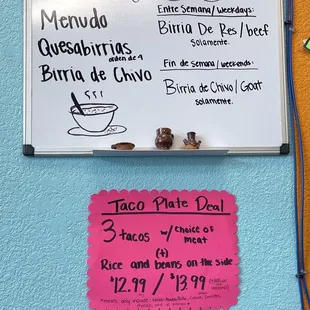 Menudo
Quesabirrias
orden de 4
Birria de Chivo
Entre Semana/weekdays:
Birria De Res/beef
Solamente.
Fin de Semana/weekends:
Birria de Chivo/Goat
solamente.
Taco Plate Deal
3 tacos w/choice of
meat
(+)
Rice and beans on the side
$12.99 / $13.99